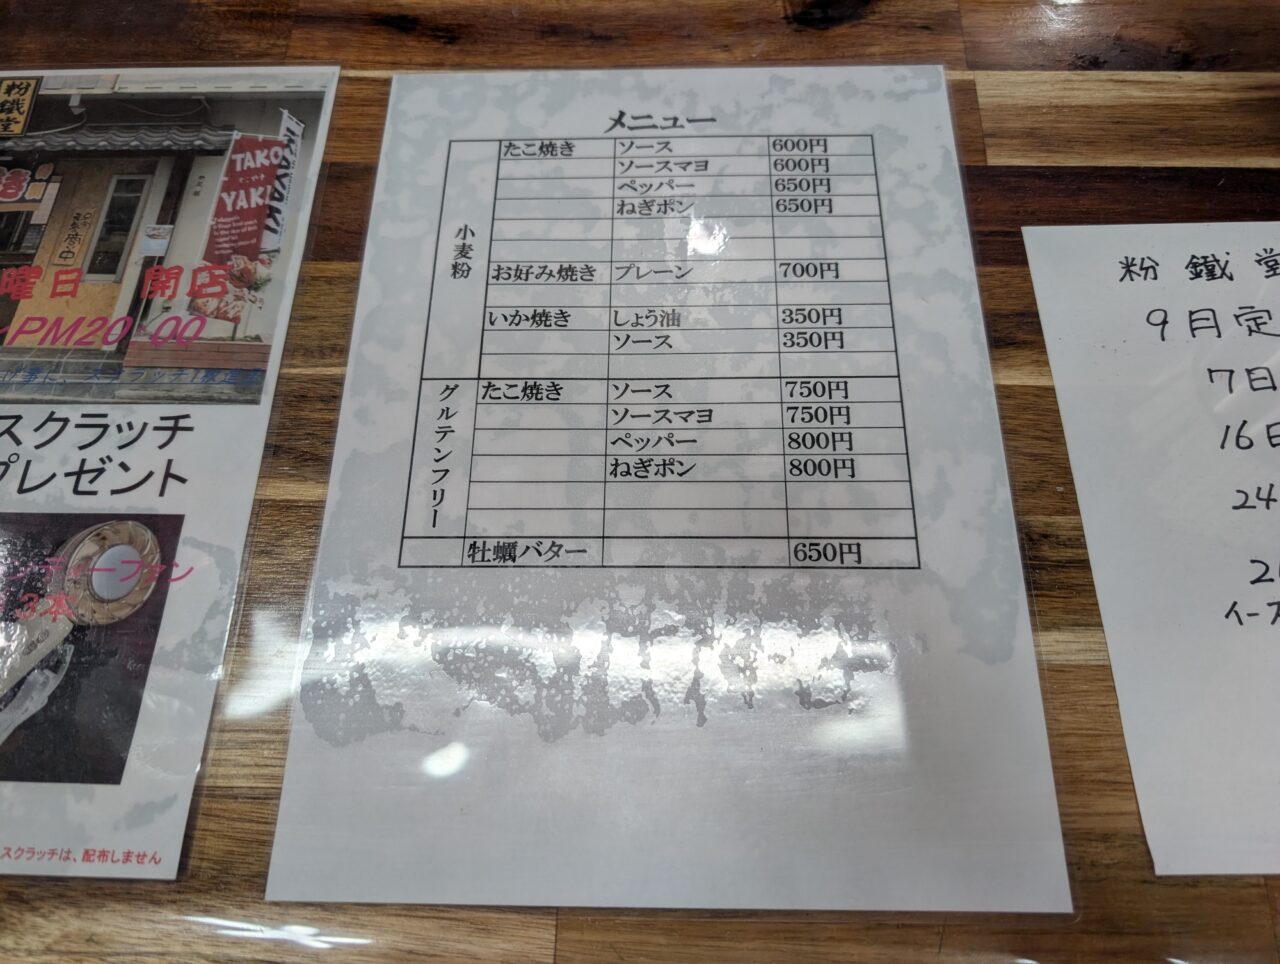 粉鐵堂
TAKO
YAKI
曜日 開店
PM20:00
スクラッチ
プレゼント
3本
スクラッチは、配布しません
メニュー
小麦粉
たこ焼き ソース 600円
ソースマヨ 600円
ペッパー 650円
ねぎポン 650円
お好み焼き プレーン 700円
いか焼き しょう油 350円
ソース 350円
グルテンフリー
たこ焼き ソース 750円
ソースマヨ 750円
ペッパー 800円
ねぎポン 800円
牡蠣バター 650円
粉鐵堂
9月定
7日
16日
24